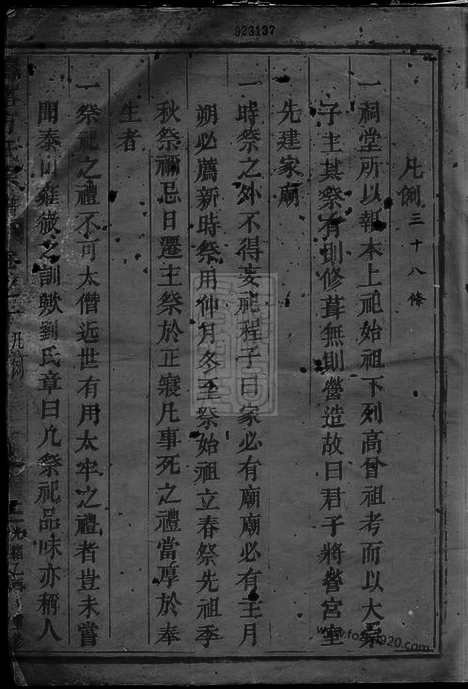 923137
凡例三十八條
一祠堂所以報本上祀始祖下列高曾祖考而以大宗
子主其祭有則修葺無則營造故曰君子將營宮室
先建家廟
一時祭之外不得妄祀程子曰家必有廟廟必有主月
朔必薦新時祭用仲月冬至祭始祖立春祭先祖季
秋祭禰忌日遷主祭於正寢凡事死之禮當厚於奉
生者
一祭祀之禮不可太僭近世有用太牢之禮者豈未嘗
聞泰山雍徹之訓歟劉氏章曰凡祭祀品味亦稱人
凡例